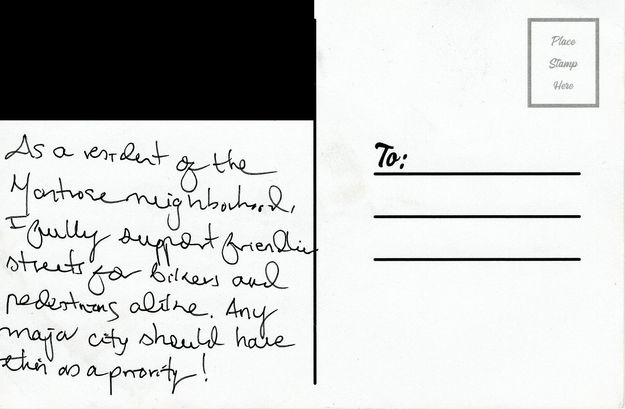 As a resident of the
Montrose neighborhood,
I fully support friendlier
streets for bikers and
pedestrians alike. Any
major city should have
this as a priority!
Place
Stamp
Here
To: